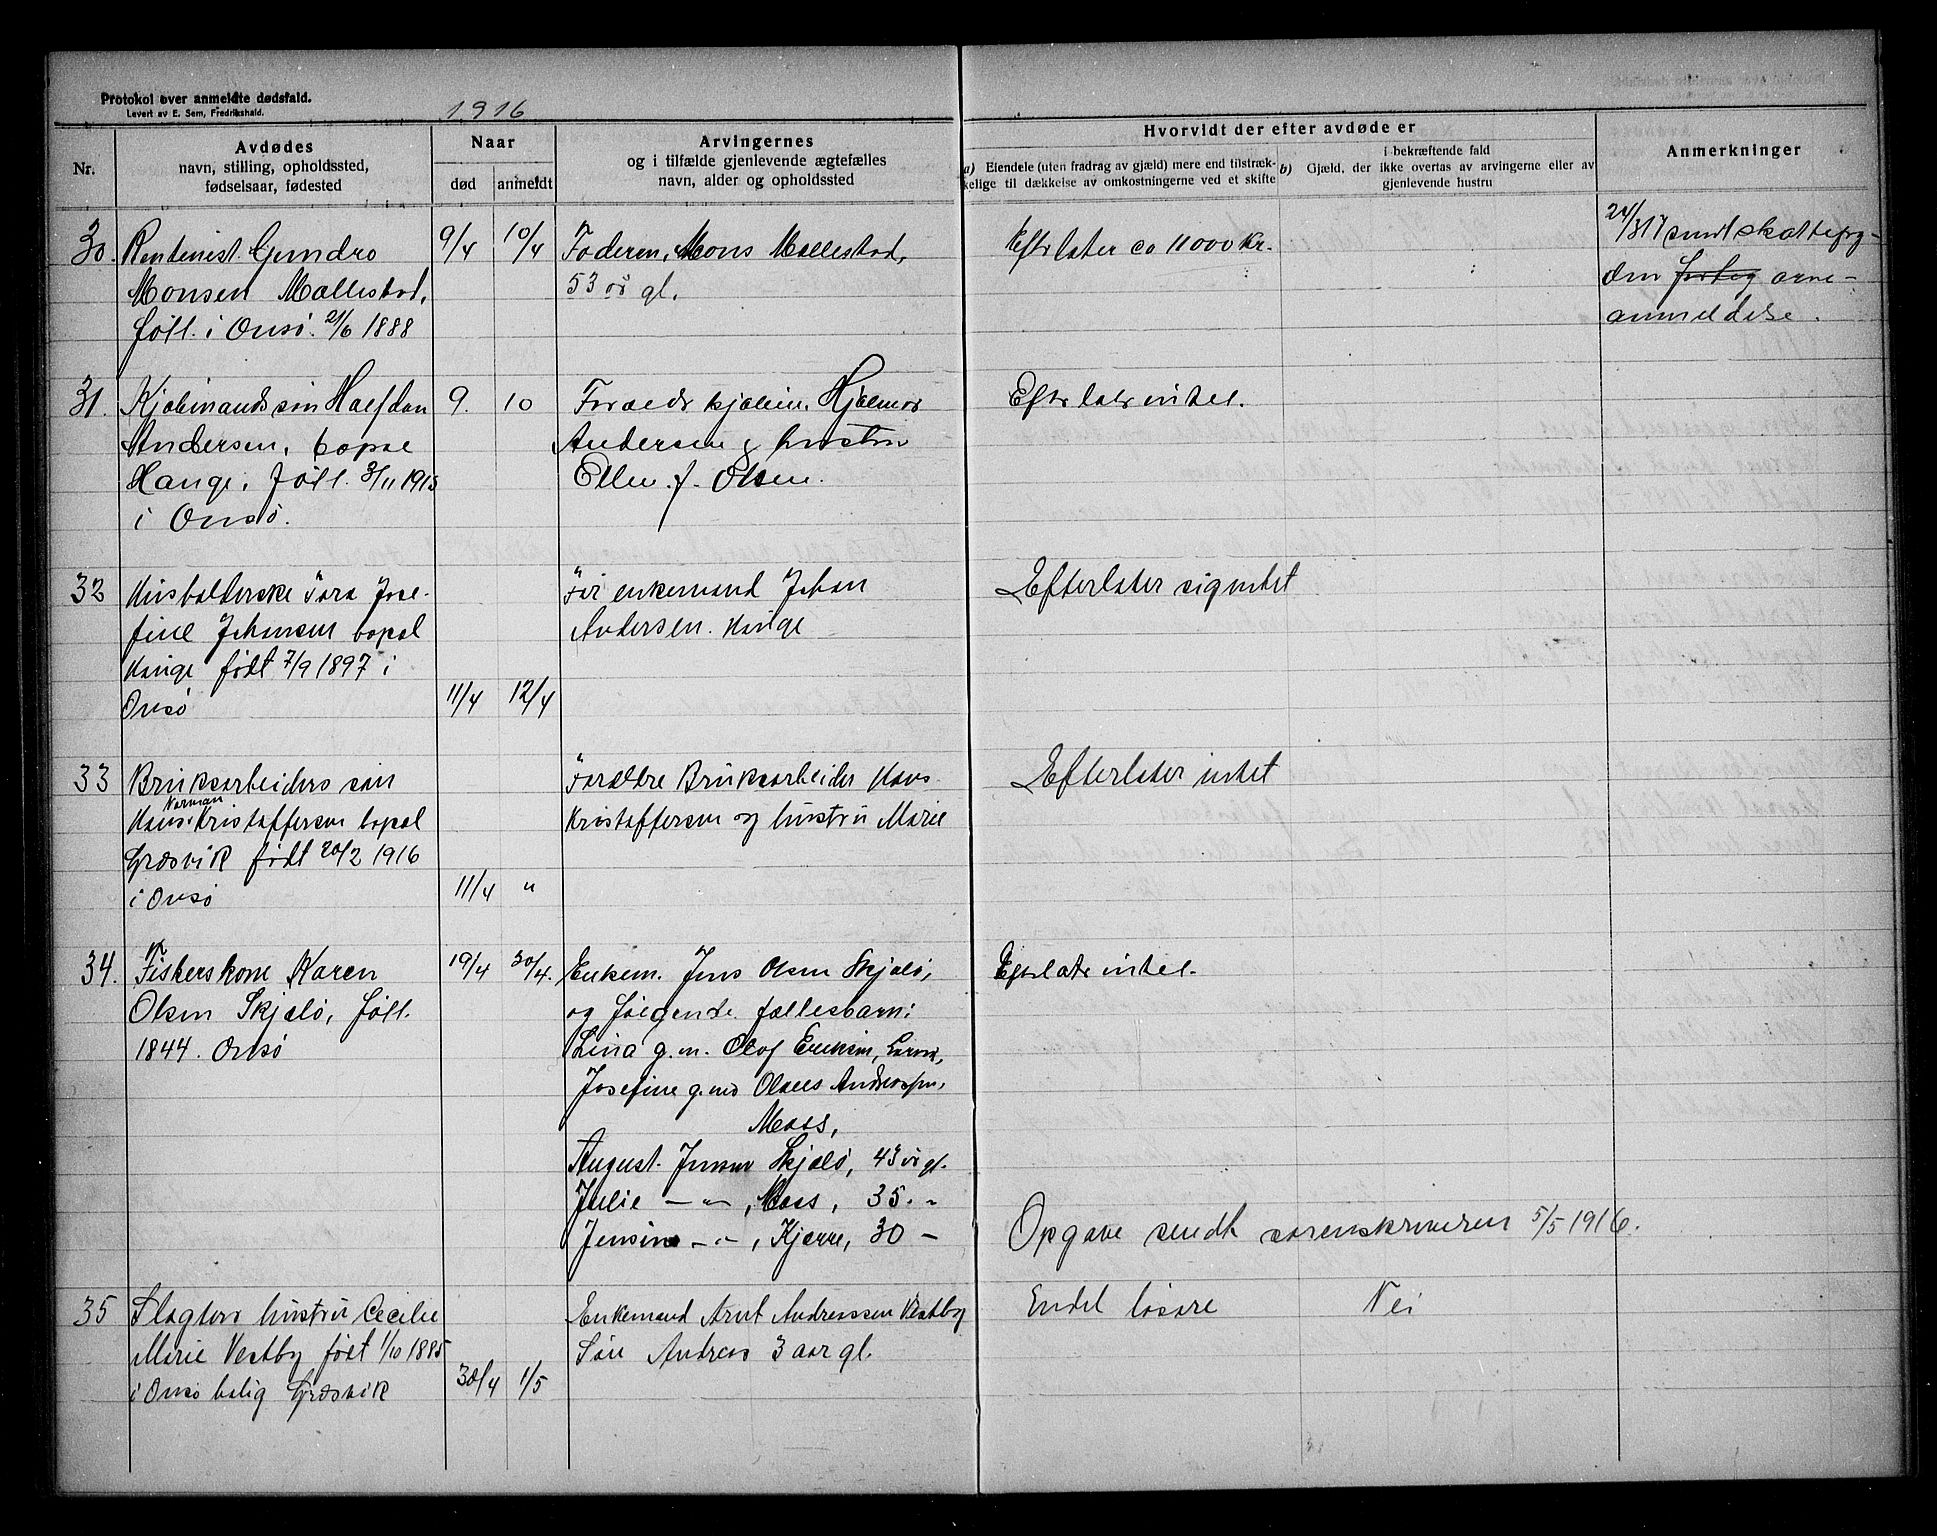 Protokol over anmeldte dødsfald.
Levert av E. Sem, Fredrikshald.
1916
Nr.
Avdødes
navn, stilling, opholdssted,
fødselsaar, fødested
Naar
død
anmeldt
Arvingernes
og i tilfælde gjenlevende ægtefælles
navn, alder og opholdssted
Hvorvidt der efter avdøde er
a) Eiendele (uten fradrag av gjæld) mere end tilstræk-
kelige til dækkelse av omkostningerne ved et skifte
i bekræftende fald
b) Gjæld, der ikke overtas av arvingerne eller av
gjenlevende hustru
Anmerkninger
30. Rentenist
Monsen Mallestad,
født i Onsø. 21/6 1888
9/4 10/4
Faderen, Mons Mallestad,
53 år gl.
Efterlater ca 11000 Kr.
24/3 17 sendt skattefog-
den arve-
anmeldelse.
31. Kjøbmands søn Halfdan
Andersen, bopæl
Hauge, født 3/11 1915
i Onsø.
9. 10
Forældr kjøbm. Hjalmar
Andersen & hustru
Ellen f. Olsen.
Efterlater intet.
32 Husholderske Tora Jose-
fine Johansen bopæl
Hauge født 7/9 1897 i
Onsø
11/4 12/4
Far enkemand Johan
Andersen. Hauge
Efterlater signntet
33 Bruksarbeiders søn
Norman
Hans Kristoffersen bopæl
Græsvik født 20/2 1916
i Onsø
11/4 "
Forældre Bruksarbeider Hans
Kristoffersen og hustru Marie
Efterlater intet
34. Fiskerskone Karen
Olsen Skjælø, født
1844. Onsø
19/4 30/4.
Enkem. Jens Olsen Skjælø,
og følgende fællesbarn:
Lina g. m. Olof Eriksen,
Josefine g. med
Moss,
August Jensen Skjælø, 43 år gl.
Julie — " — , Moss, 35. "
Jensine — " — , 30 —
Efterlater intet.
Opgave sendt sorenskriveren 5/5 1916.
35 Slagters hustru Cecilie
Marie Vestby født 1/10 1885
i Onsø bolig Græsvik
30/4 1/5
Enkemand Arnt Andreassen Vestby
Søn Andreas 3 aar gl.
Endel løsøre
Nei